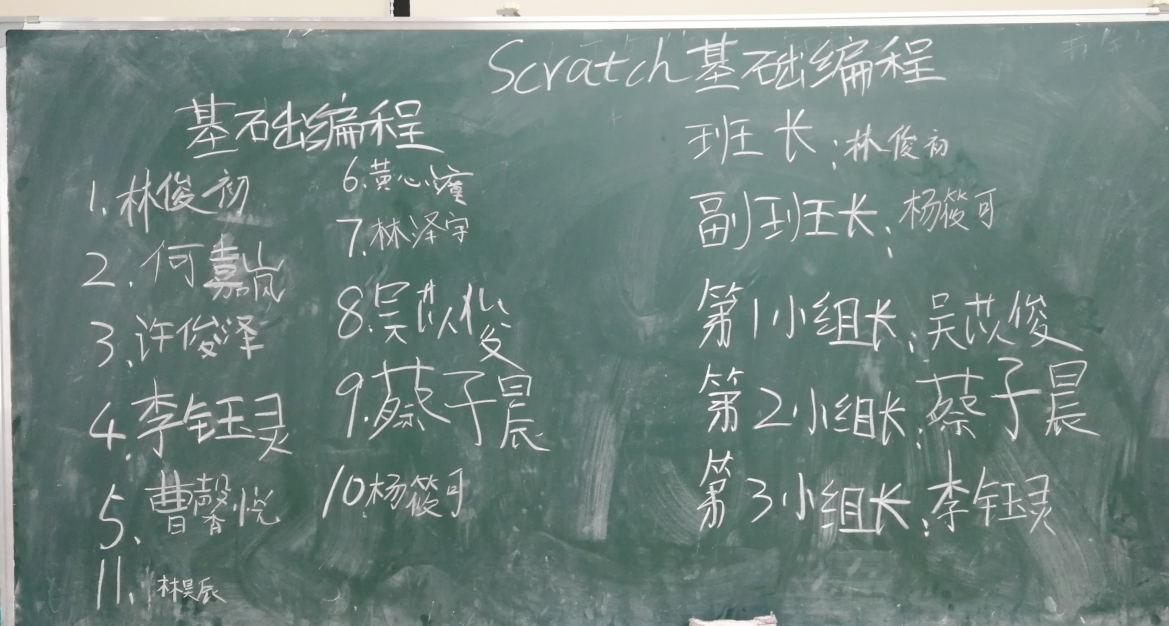 Scratch基础编程
基础编程
1.林俊初
2.何嘉岚
3.许俊泽
4.李钰灵
5.曹馨悦
11.林昊辰
6.黄心
7.林泽宇
8.吴苡俊
9.蔡子晨
10.杨筱可
班长:林俊初
副班长:杨筱可
第1小组长:吴苡俊
第2小组长:蔡子晨
第3小组长:李钰灵